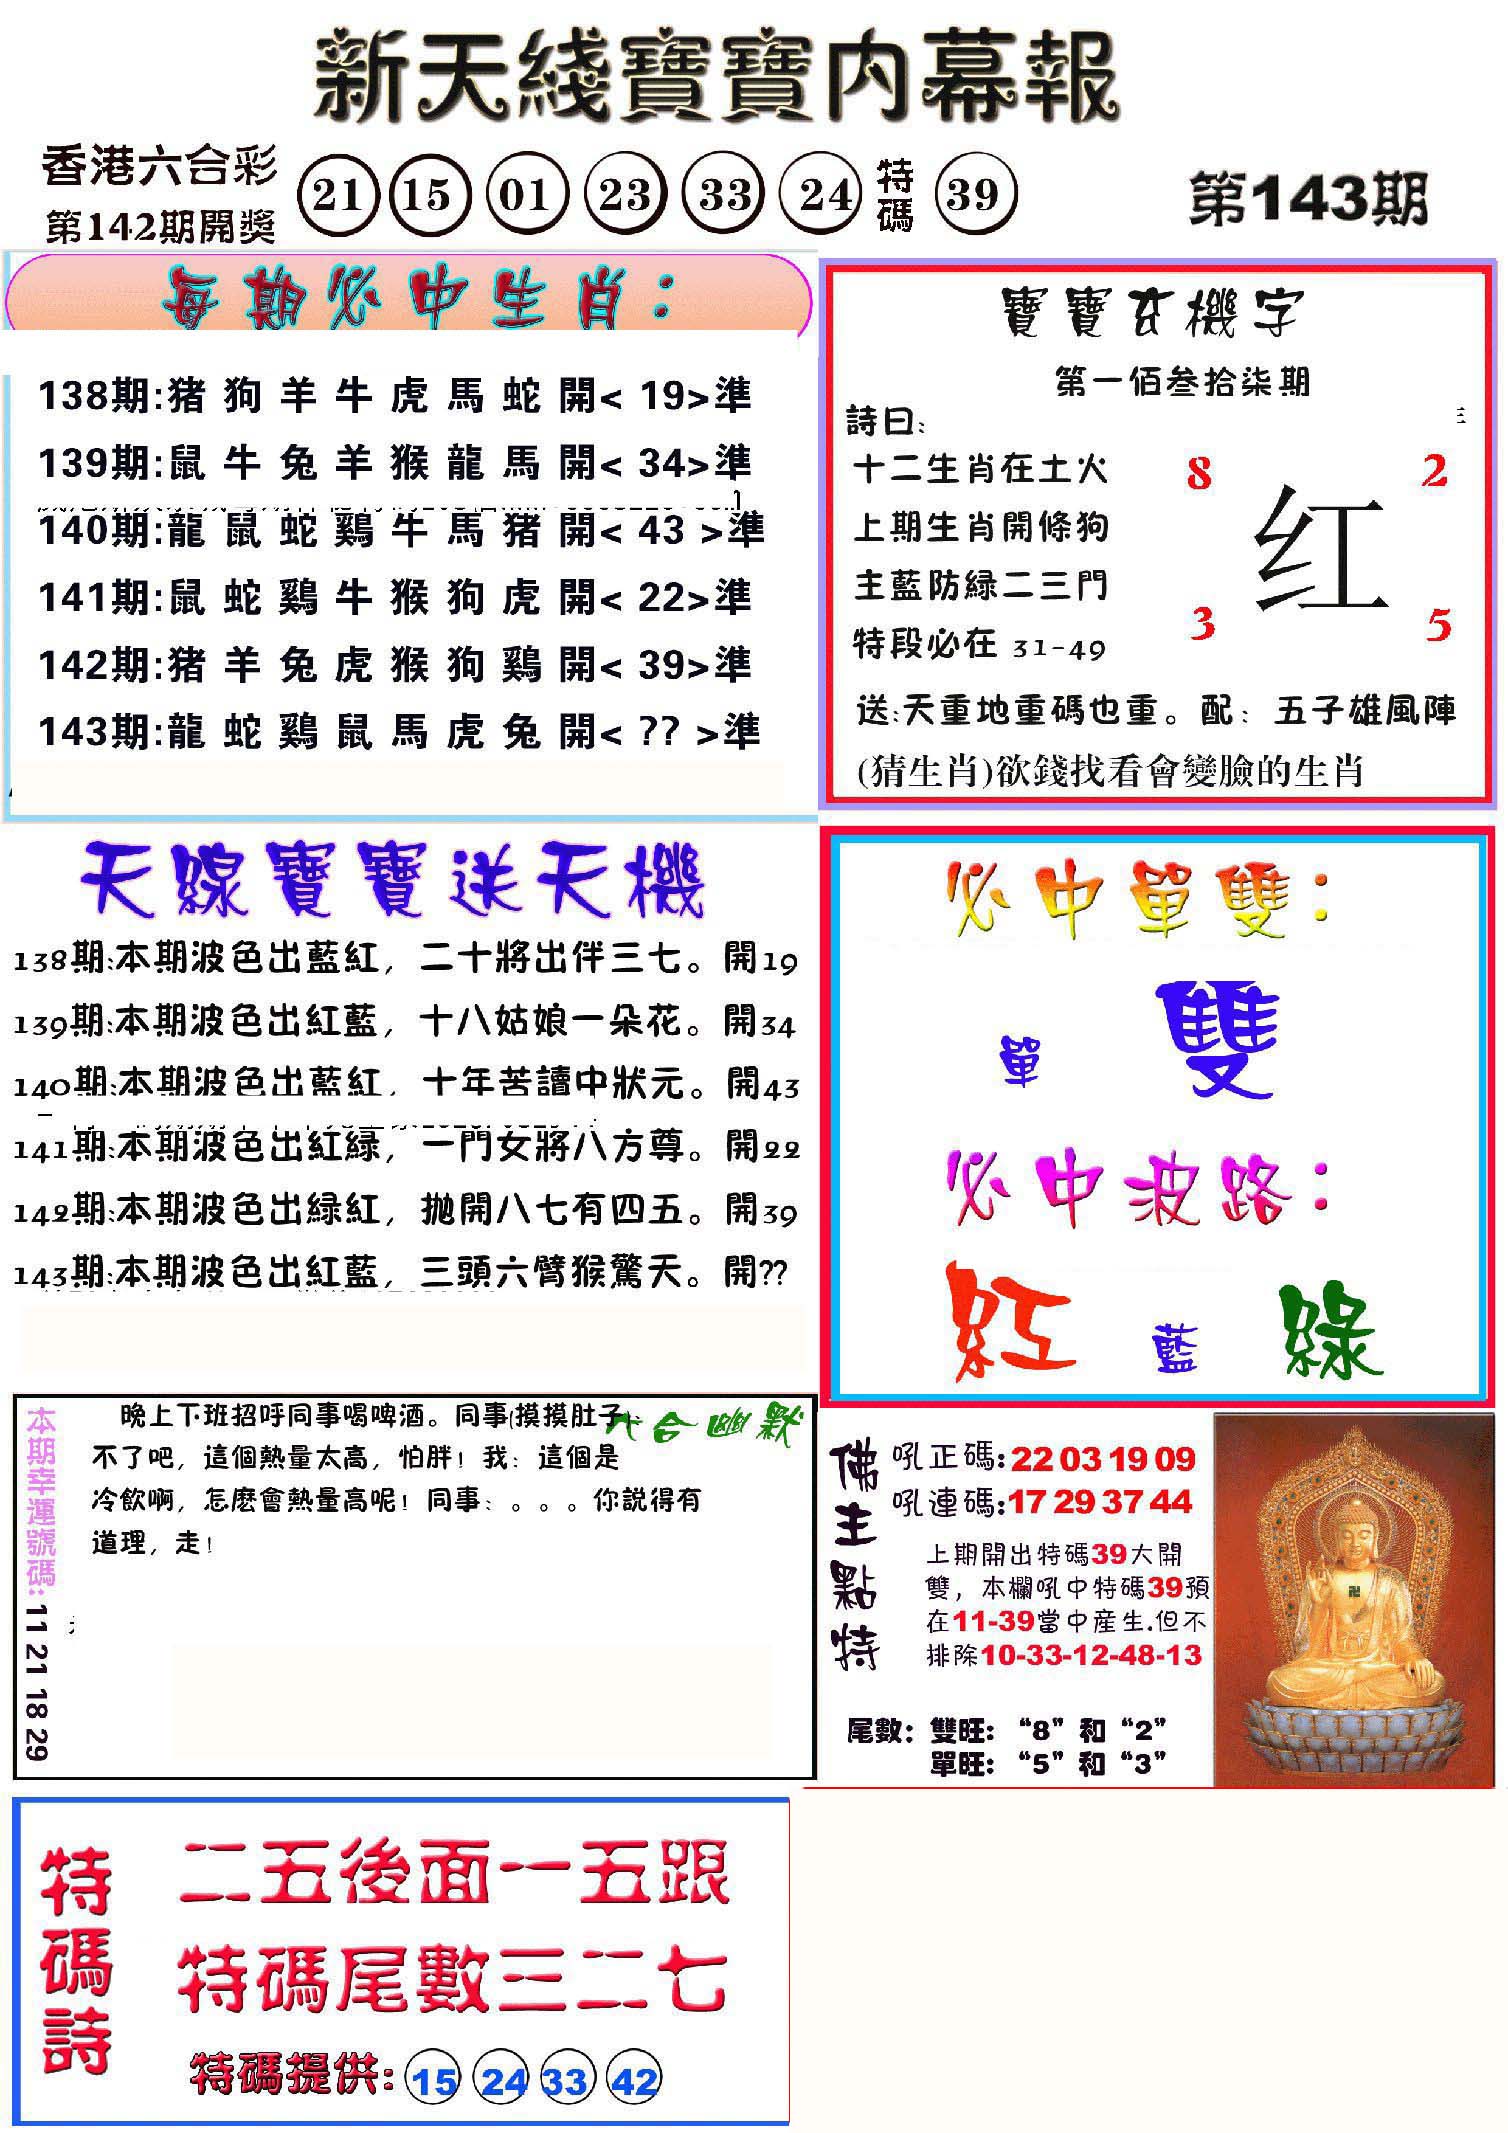 新天綫寶寶内幕報
香港六合彩
第142期開獎
21 15 01 23 33 24 特碼 39
第143期
每期必中生肖：
138期:猪 狗 羊 牛 虎 馬 蛇 開< 19>準
139期:鼠 牛 兔 羊 猴 龍 馬 開< 34>準
140期:龍 鼠 蛇 鷄 牛 馬 猪 開< 43 >準
141期:鼠 蛇 鷄 牛 猴 狗 虎 開< 22>準
142期:猪 羊 兔 虎 猴 狗 鷄 開< 39>準
143期:龍 蛇 鷄 鼠 馬 虎 兔 開< ?? >準
寶寶玄機字
第一佰叁拾柒期
詩曰:
十二生肖在土火
上期生肖開條狗
主藍防緑二三門
特段必在 31-49
8 2
红
3 5
送:天重地重碼也重。配: 五子雄風陣
(猜生肖)欲錢找看會變臉的生肖
天線寶寶送天機
138期:本期波色出藍紅, 二十將出伴三七。開19
139期:本期波色出紅藍, 十八姑娘一朵花。開34
140期:本期波色出藍紅, 十年苦讀中狀元。開43
141期:本期波色出紅緑, 一門女將八方尊。開22
142期:本期波色出緑紅, 拋開八七有四五。開39
143期:本期波色出紅藍, 三頭六臂猴驚天。開??
必中單雙：
單 雙
必中波路：
紅 藍 緑
本期幸運號碼: 11 21 18 29
六合幽默
晚上下班招呼同事喝啤酒。同事(摸摸肚子):
不了吧, 這個熱量太高, 怕胖! 我: 這個是
冷飲啊, 怎麽會熱量高呢! 同事: 。。。你説得有
道理, 走!
佛主點特
吼正碼:22 03 19 09
吼連碼:17 29 37 44
上期開出特碼39大開
雙, 本欄吼中特碼39預
在11-39當中産生.但不
排除10-33-12-48-13
尾數: 雙旺: “8”和“2”
單旺: “5”和“3”
特碼詩
二五後面一五跟
特碼尾數三二七
特碼提供: 15 24 33 42